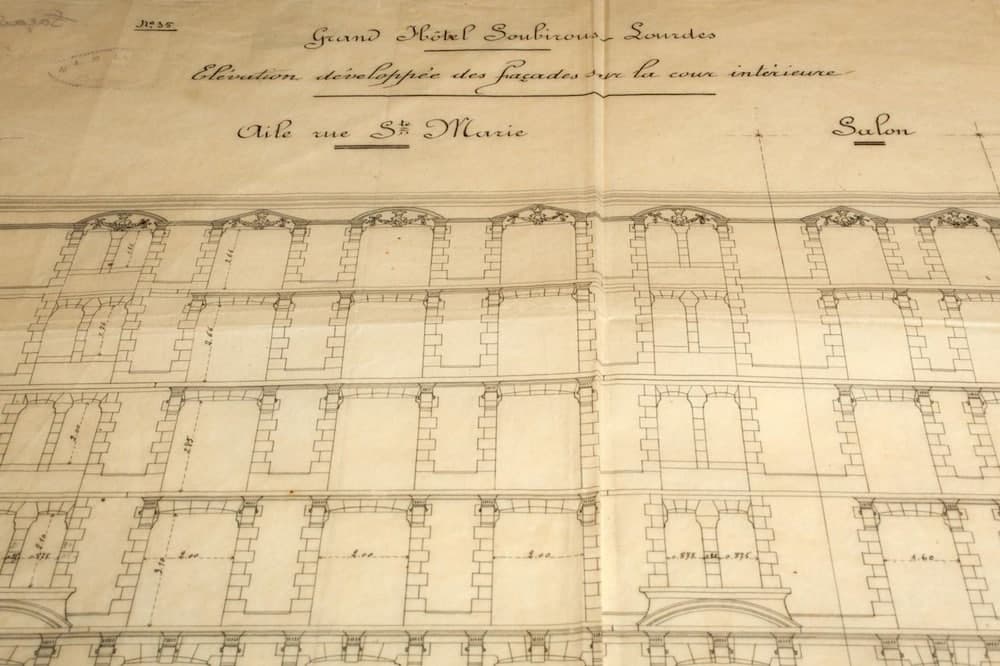 No 35
Grand Hôtel Soubirous - Lourdes
Elévation développée des façades sur la cour intérieure
Aile rue Ste Marie
Salon
2.66
2.00
2.85
3.10
2.00
2.00
2.00
.875
0.875
1.60